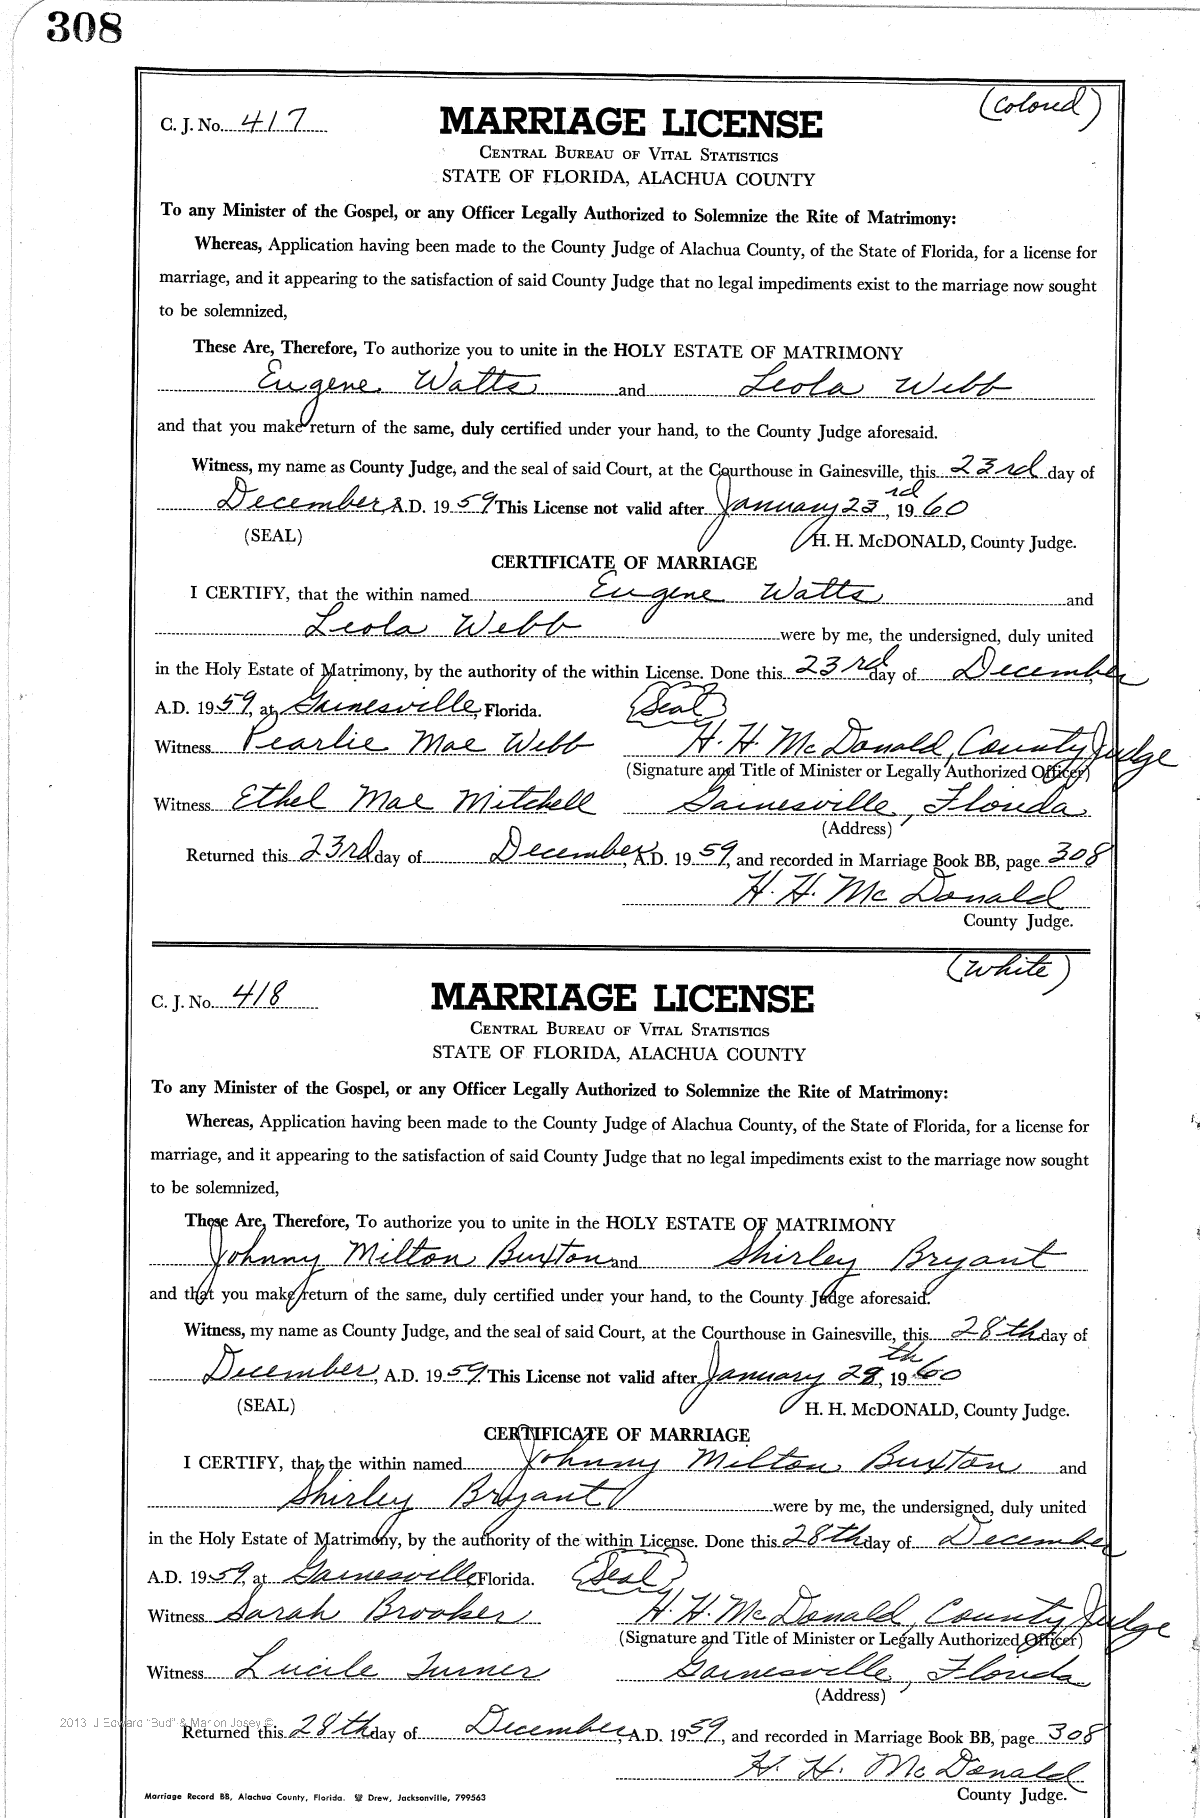 308
C. J. No. 417
(Colored)
MARRIAGE LICENSE
CENTRAL BUREAU OF VITAL STATISTICS
STATE OF FLORIDA, ALACHUA COUNTY
To any Minister of the Gospel, or any Officer Legally Authorized to Solemnize the Rite of Matrimony:
Whereas, Application having been made to the County Judge of Alachua County, of the State of Florida, for a license for
marriage, and it appearing to the satisfaction of said County Judge that no legal impediments exist to the marriage now sought
to be solemnized,
These Are, Therefore, To authorize you to unite in the HOLY ESTATE OF MATRIMONY
Eugene Watts and Leola Webb
and that you make return of the same, duly certified under your hand, to the County Judge aforesaid.
Witness, my name as County Judge, and the seal of said Court, at the Courthouse in Gainesville, this 23rd day of
December, A.D. 1959 This License not valid after January 23rd, 1960
(SEAL) H. H. McDONALD, County Judge.
CERTIFICATE OF MARRIAGE
I CERTIFY, that the within named Eugene Watts and
Leola Webb were by me, the undersigned, duly united
in the Holy Estate of Matrimony, by the authority of the within License. Done this 23rd day of December
A.D. 1959, at Gainesville, Florida. (Seal)
Witness Pearlie Mae Webb H. H. McDonald, County Judge
(Signature and Title of Minister or Legally Authorized Officer)
Witness Ethel Mae Mitchell Gainesville, Florida
(Address)
Returned this 23rd day of December, A.D. 1959, and recorded in Marriage Book BB, page 308
H. H. McDonald
County Judge.
(White)
C. J. No. 418
MARRIAGE LICENSE
CENTRAL BUREAU OF VITAL STATISTICS
STATE OF FLORIDA, ALACHUA COUNTY
To any Minister of the Gospel, or any Officer Legally Authorized to Solemnize the Rite of Matrimony:
Whereas, Application having been made to the County Judge of Alachua County, of the State of Florida, for a license for
marriage, and it appearing to the satisfaction of said County Judge that no legal impediments exist to the marriage now sought
to be solemnized,
These Are, Therefore, To authorize you to unite in the HOLY ESTATE OF MATRIMONY
Johnny Milton Buxton and Shirley Bryant
and that you make return of the same, duly certified under your hand, to the County Judge aforesaid.
Witness, my name as County Judge, and the seal of said Court, at the Courthouse in Gainesville, this 28th day of
December, A.D. 1959 This License not valid after January 28th, 1960
(SEAL) H. H. McDONALD, County Judge.
CERTIFICATE OF MARRIAGE
I CERTIFY, that the within named Johnny Milton Buxton and
Shirley Bryant were by me, the undersigned, duly united
in the Holy Estate of Matrimony, by the authority of the within License. Done this 28th day of December
A.D. 1959, at Gainesville, Florida. (Seal)
Witness Sarah Brooker H. H. McDonald, County Judge
(Signature and Title of Minister or Legally Authorized Officer)
Witness Lucile Turner Gainesville, Florida
(Address)
2013 J Edward "Bud" & Marion Josey ©
Returned this 28th day of December, A.D. 1959, and recorded in Marriage Book BB, page 308
H. H. McDonald
County Judge.
Marriage Record BB, Alachua County, Florida. Drew, Jacksonville, 799563